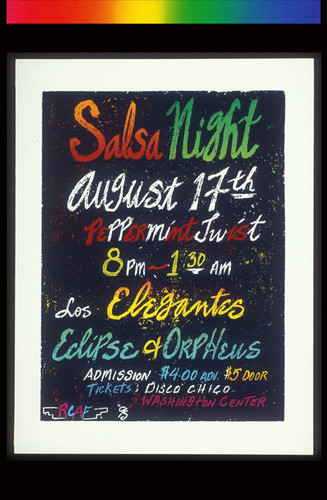 Salsa Night
August 17th
Peppermint Twist
8 PM ~ 1 30 AM
Los Elegantes
Eclipse & Orpheus
Admission $4.00 adv. $5 Door
Tickets: Disco Chico
Washington Center
RCAF